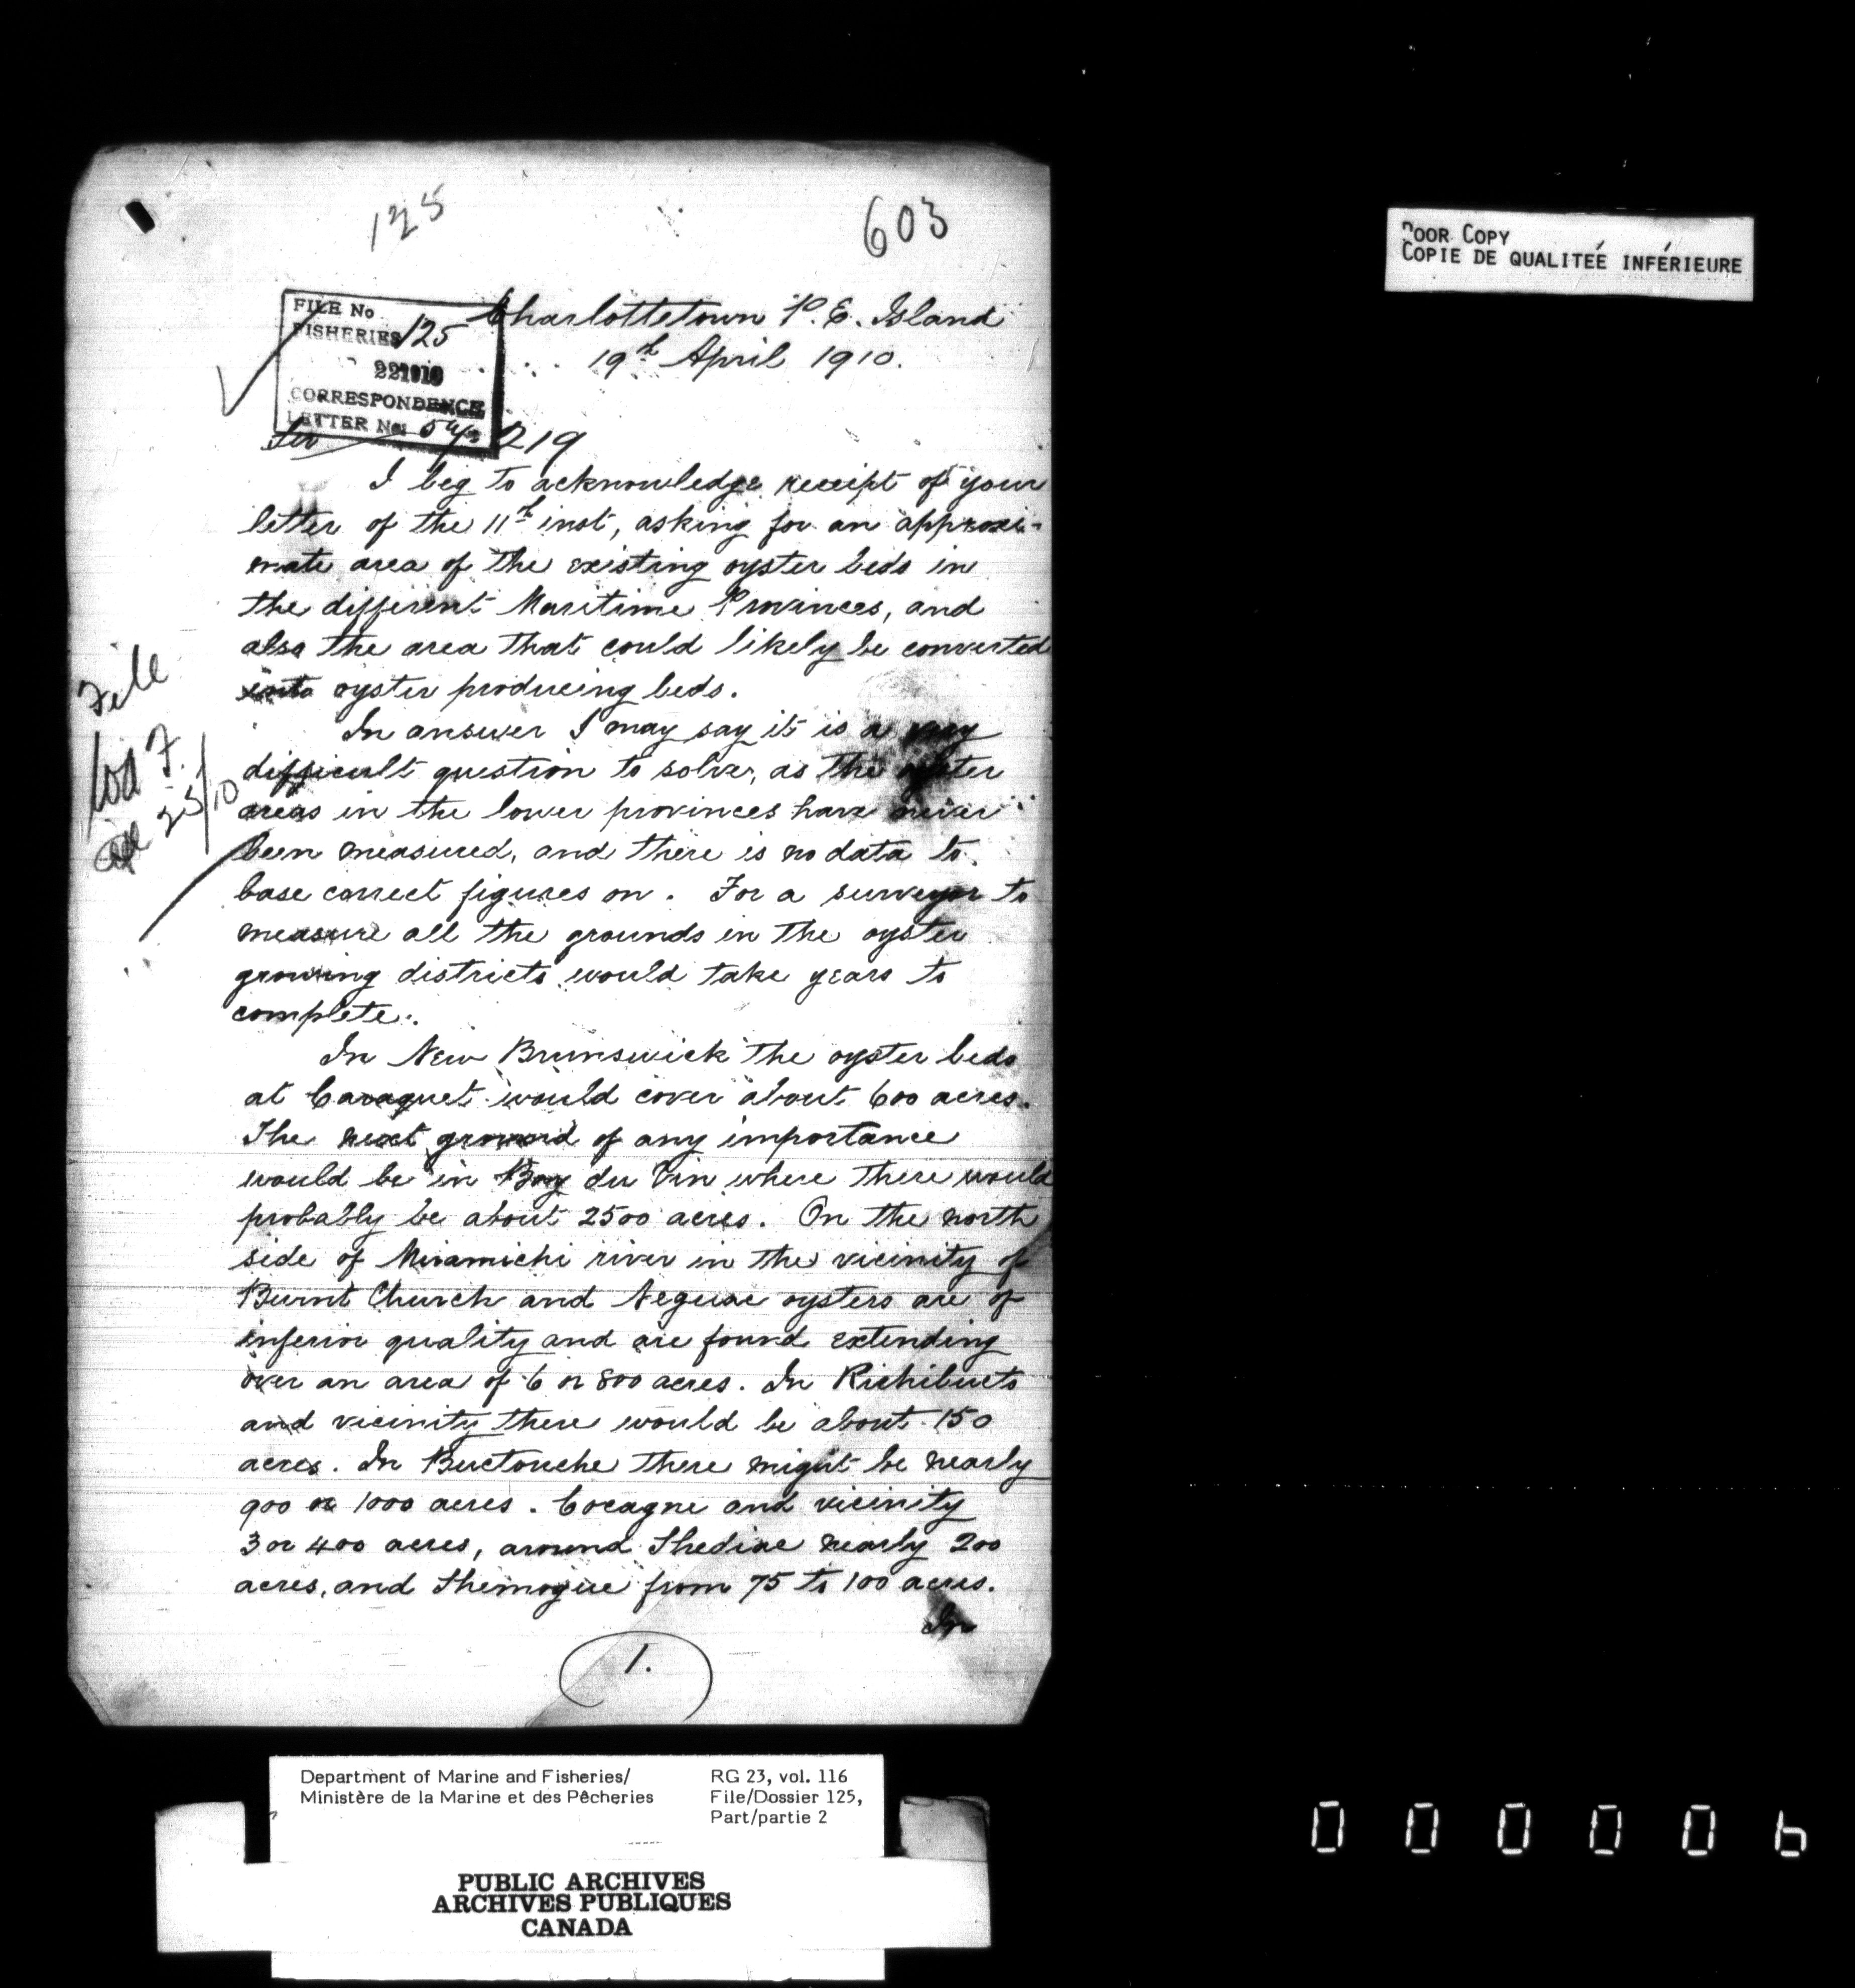 125
603
POOR COPY
COPIE DE QUALITEÉ INFÉRIEURE
FILE No
FISHERIES 125
221910
CORRESPONDENCE
LETTER No. 219
Charlottetown P. E. Island
19th April 1910.
Sir
I beg to acknowledge receipt of your
letter of the 11th inst, asking for an approxi-
mate area of the existing oyster beds in
the different Maritime Provinces, and
also the area that could likely be converted
into oyster producing beds.
In answer I may say it is a very
difficult question to solve, as the oyster
areas in the lower provinces have never
been measured, and there is no data to
base correct figures on. For a surveyor to
measure all the grounds in the oyster
growing districts would take years to
complete.
In New Brunswick the oyster beds
at Caraquet would cover about 600 acres.
The next ground of any importance
would be in Bay du Vin where there would
probably be about 2500 acres. On the north
side of Miramichi river in the vicinity of
Burnt Church and Neguac oysters are of
inferior quality and are found extending
over an area of 6 or 800 acres. In Richibucto
and vicinity there would be about 150
acres. In Buctouche there might be nearly
900 or 1000 acres. Cocagne and vicinity
3 or 400 acres, around Shediac nearly 200
acres, and Shemogue from 75 to 100 acres.
In
1.
File
25/10
Department of Marine and Fisheries/
Ministère de la Marine et des Pêcheries
RG 23, vol. 116
File/Dossier 125,
Part/partie 2
PUBLIC ARCHIVES
ARCHIVES PUBLIQUES
CANADA
000006